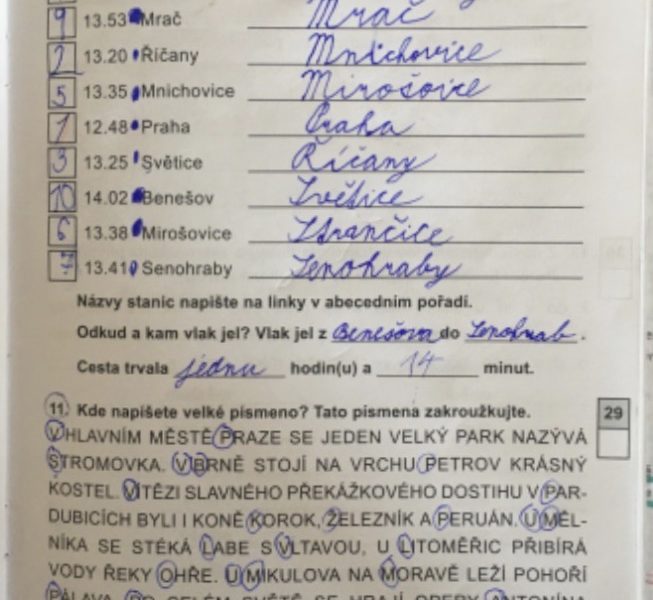 9 13.53 Mrač Mrač
2 13.20 Říčany Mnichovice
5 13.35 Mnichovice Mirošovice
1 12.48 Praha Praha
3 13.25 Světice Říčany
10 14.02 Benešov Světice
6 13.38 Mirošovice Strančice
7 13.41 Senohraby Senohraby
Názvy stanic napište na linky v abecedním pořadí.
Odkud a kam vlak jel? Vlak jel z Benešova do Senohrab.
Cesta trvala jednu hodin(u) a 14 minut.
11. Kde napíšete velké písmeno? Tato písmena zakroužkujte. 29
V HLAVNÍM MĚSTĚ PRAZE SE JEDEN VELKÝ PARK NAZÝVÁ
STROMOVKA. V BRNĚ STOJÍ NA VRCHU PETROV KRÁSNÝ
KOSTEL. VÍTĚZI SLAVNÉHO PŘEKÁŽKOVÉHO DOSTIHU V PAR-
DUBICÍCH BYLI I KONĚ KOROK, ŽELEZNÍK A PERUÁN. U MĚL-
NÍKA SE STÉKÁ LABE S VLTAVOU, U LITOMĚŘIC PŘIBÍRÁ
VODY ŘEKY OHŘE. U MIKULOVA NA MORAVĚ LEŽÍ POHOŘÍ
PÁLAVA. PO CELÉM SVĚTĚ SE HRAJÍ OPERY ANTONÍNA